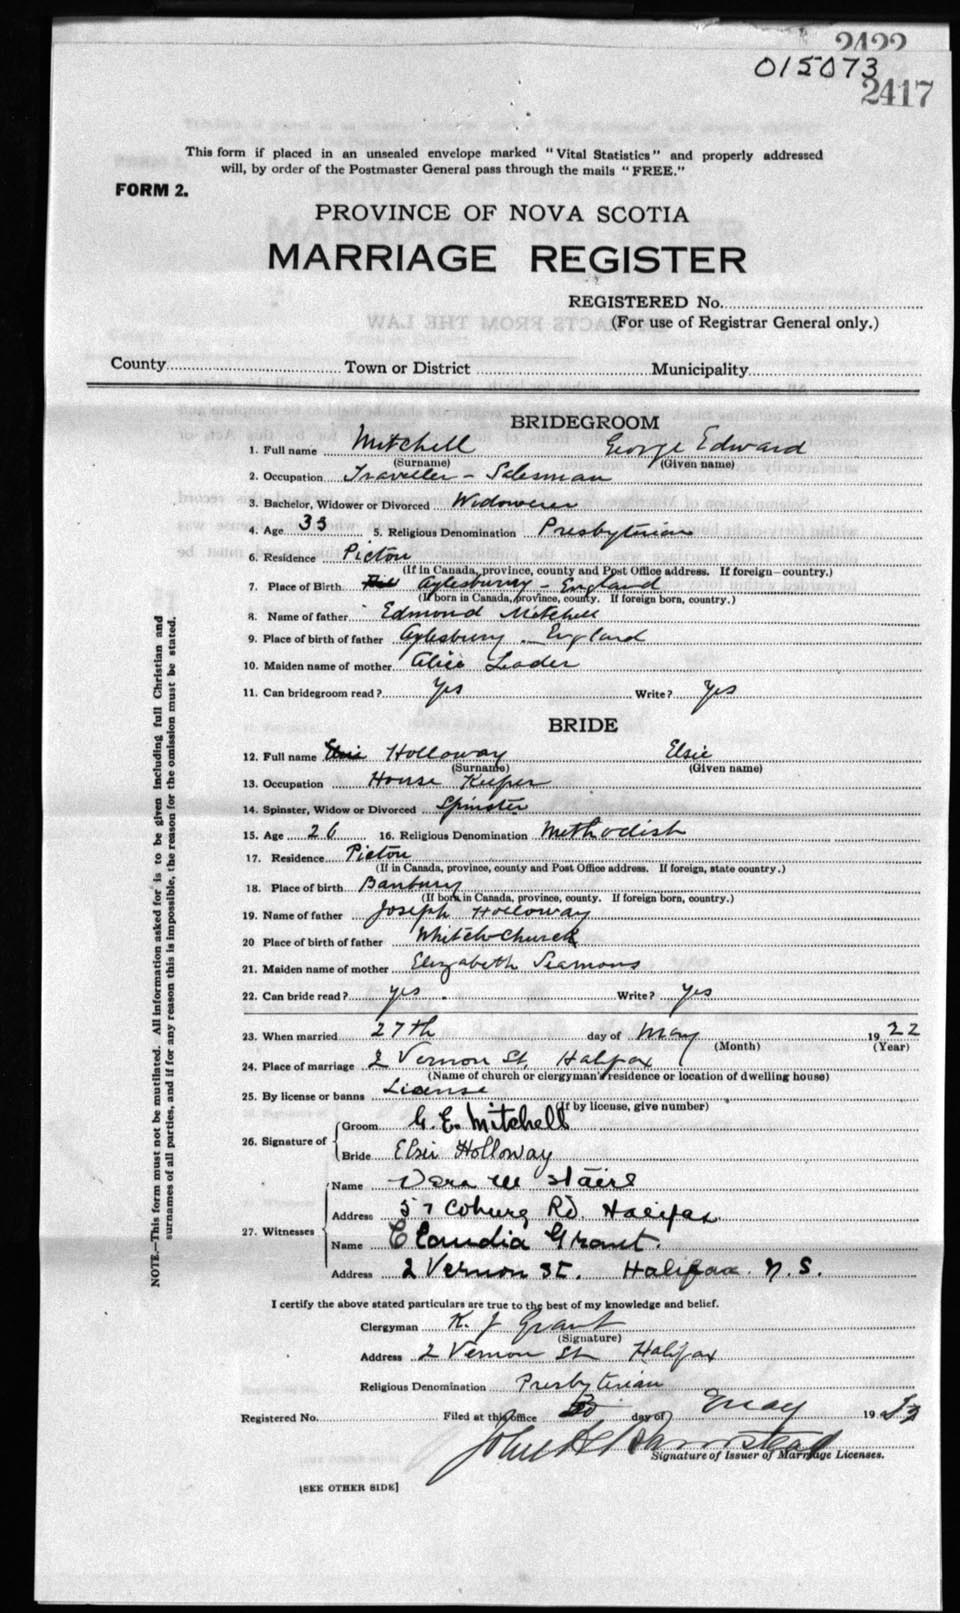 2422
015073
2417
This form if placed in an unsealed envelope marked "Vital Statistics" and properly addressed
will, by order of the Postmaster General pass through the mails "FREE."
FORM 2.
PROVINCE OF NOVA SCOTIA
MARRIAGE REGISTER
REGISTERED No.
(For use of Registrar General only.)
County Town or District Municipality
BRIDEGROOM
1. Full name Mitchell George Edward
(Surname) (Given name)
2. Occupation Traveller - Salesman
3. Bachelor, Widower or Divorced Widower
4. Age 33 5. Religious Denomination Presbyterian
6. Residence Pictou
(If in Canada, province, county and Post Office address. If foreign—country.)
7. Place of Birth Aylesburry - England
(If born in Canada, province, county. If foreign born, country.)
8. Name of father Edmond Mitchell
9. Place of birth of father Aylesbury - England
10. Maiden name of mother Alice Leader
11. Can bridegroom read? Yes Write? Yes
BRIDE
12. Full name Holloway Elsie
(Surname) (Given name)
13. Occupation House Keeper
14. Spinster, Widow or Divorced Spinster
15. Age 26 16. Religious Denomination Methodist
17. Residence Pictou
(If in Canada, province, county and Post Office address. If foreign, state country.)
18. Place of birth Banbury
(If born in Canada, province, county. If foreign born, country.)
19. Name of father Joseph Holloway
20 Place of birth of father Whitchurch
21. Maiden name of mother Elizabeth Seamons
22. Can bride read? yes. Write? yes
23. When married 27th day of May 1922
(Month) (Year)
24. Place of marriage 2 Vernon St, Halifax
(Name of church or clergyman's residence or location of dwelling house)
25. By license or banns License
(If by license, give number)
26. Signature of
Groom G. E. Mitchell
Bride Elsie Holloway
27. Witnesses
Name Vera M Stairs
Address 57 Coburg Rd. Halifax
Name Claudia Grant.
Address 2 Vernon St. Halifax. N.S.
I certify the above stated particulars are true to the best of my knowledge and belief.
Clergyman K. J Grant
(Signature)
Address 2 Vernon St Halifax
Religious Denomination Presbyterian
Registered No. Filed at this office day of May 19
John A Barnstead
Signature of Issuer of Marriage Licenses.
[SEE OTHER SIDE]
NOTE.—This form must not be mutilated. All information asked for is to be given including full Christian and
surnames of all parties, and if for any reason this is impossible, the reason for the omission must be stated.